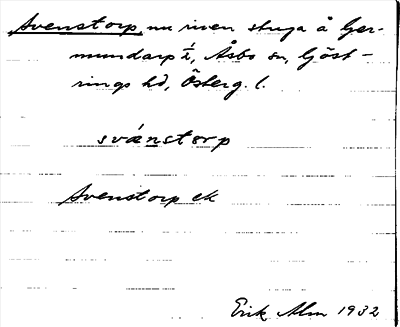 Svenstorp, nu riven stuga å Ger-
mundarp 1/2, Åsbo sn, Göst-
rings hd, Österg. l.
svänstorp
Svenstorp ek
Erik Alm 1932